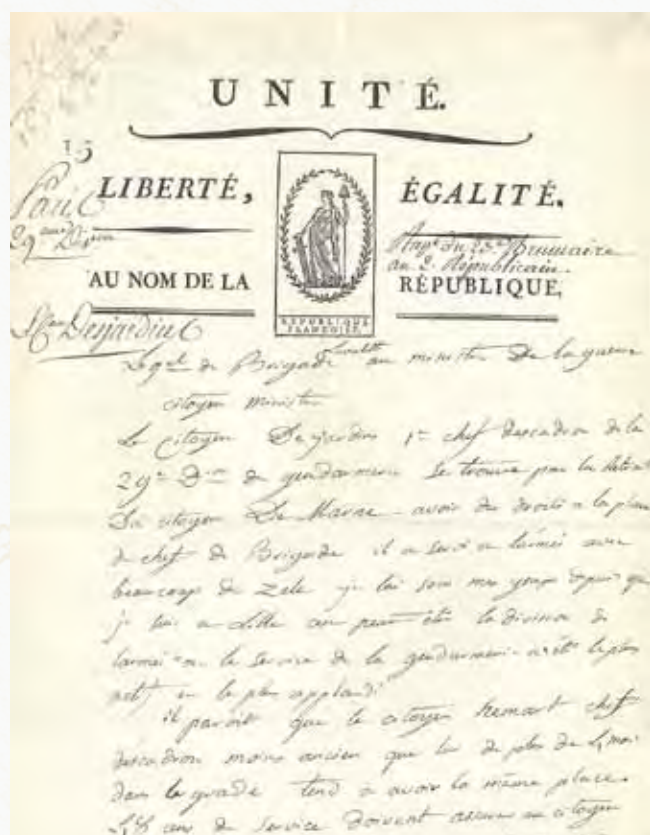 UNITÉ.
15
LIBERTÉ, ÉGALITÉ.
Paris
29eme Dion
Rapt du 23e Brumaire
an 2. Républicain.
AU NOM DE LA RÉPUBLIQUE,
RÉPUBLIQUE
FRANÇOISE.
Desjardins
Le gal de Brigade au ministre De la guerre
citoyen ministre
Le citoyen Desjardins 1er chef descadron de la
29e Don de gendarmerie se trouve par la
Du citoyen De Marne avoir des droits a la place
de chef de Brigade il a servi a larmée avec
beaucoup de Zele je lai sous mes yeux depuis que
je suis a Lille peut être la division de
larmée ou le service de la gendarmerie a été le plus
actif et le plus applaudi
il paroit que le citoyen hemart chef
descadron moins ancien que lui de plus de 4 mois
dans le grade tend a avoir la même place
ans de service doivent assurer au citoyen